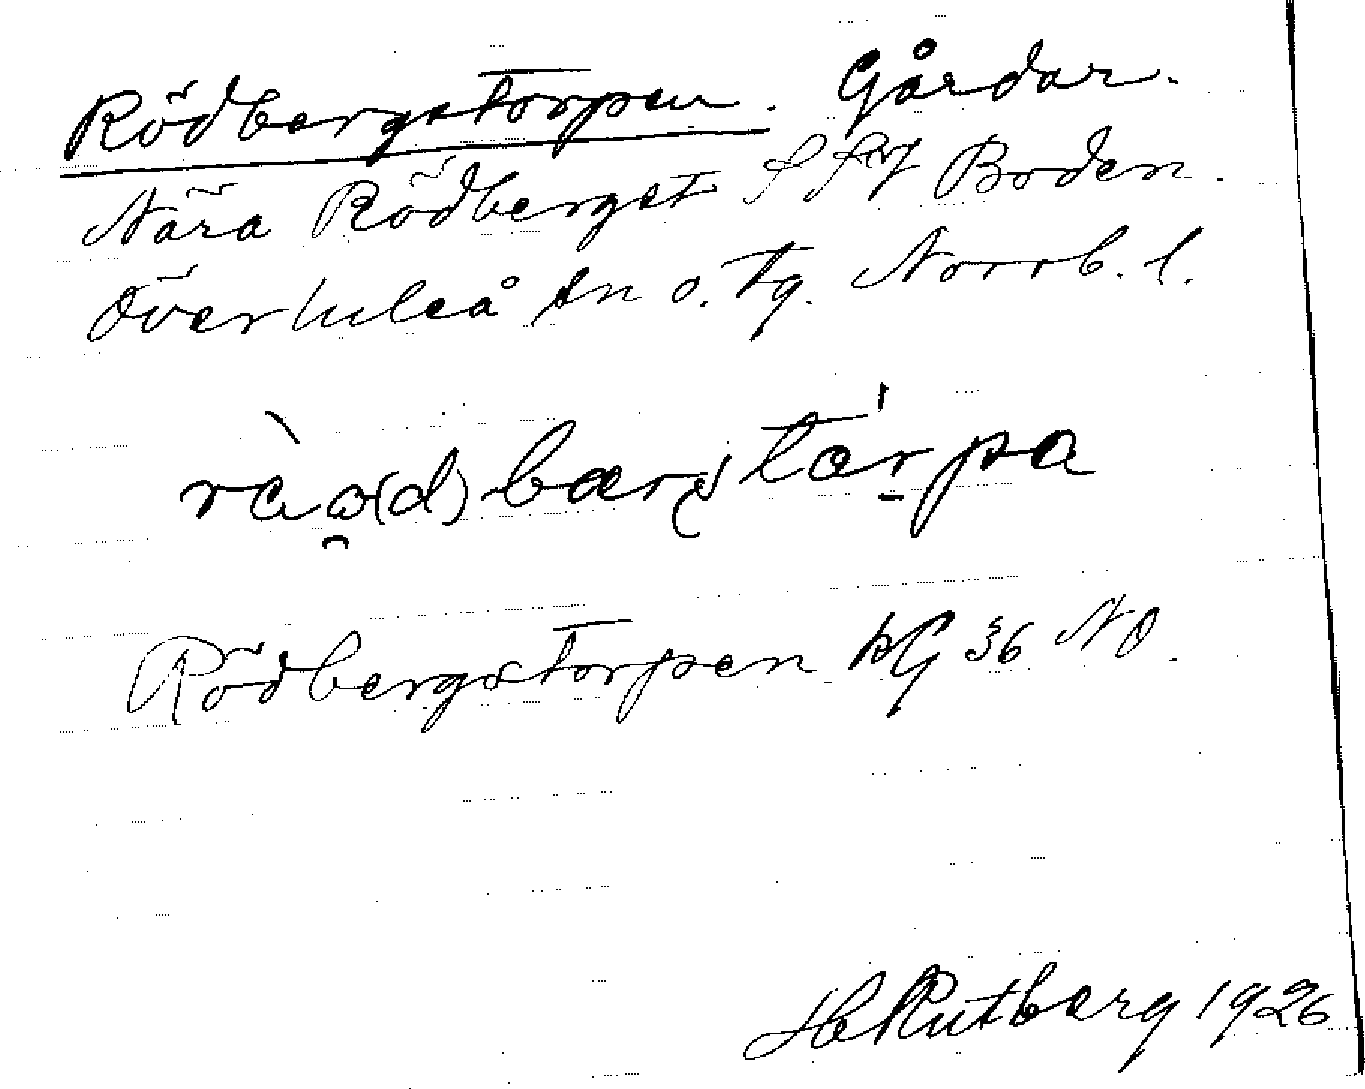 Rödbergstorpen. Gårdar.
Nära Rödberget S SV Boden.
Överluleå sn o. tg. Norrb. l.
Rödbergstorpen kG 36 NO.
H Rutberg 1926